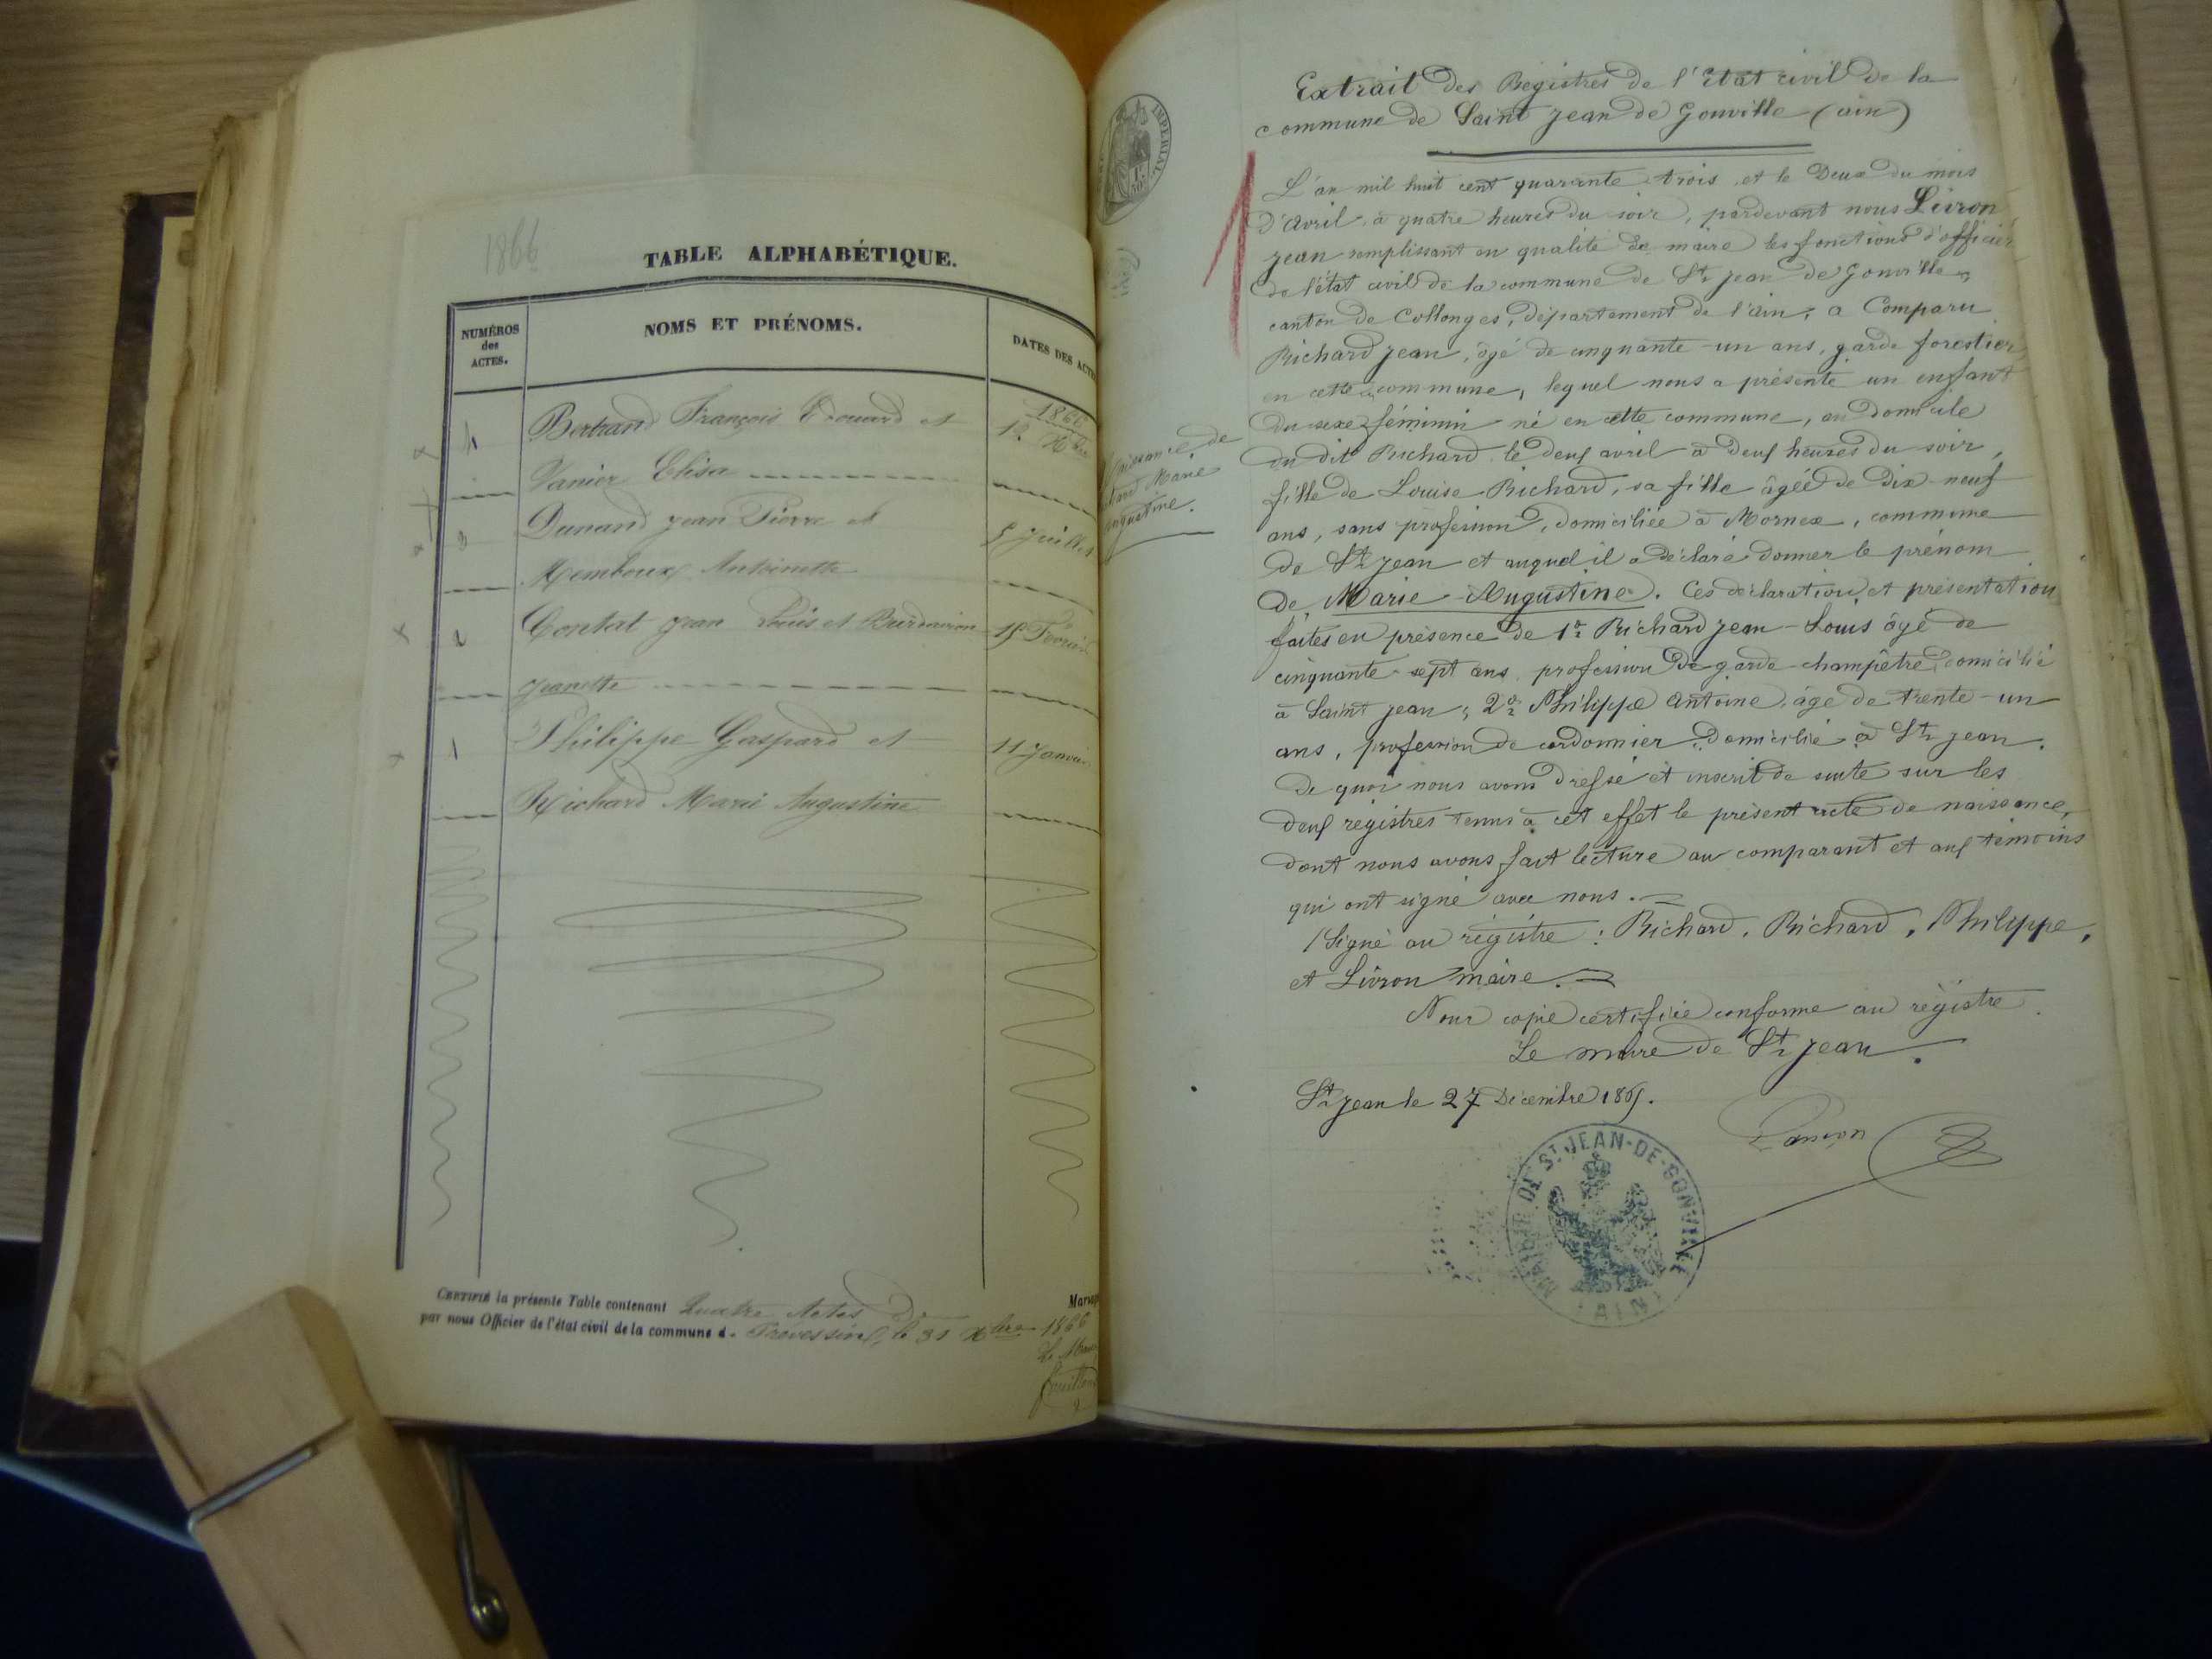 1866
TABLE ALPHABÉTIQUE.
NUMÉROS
des
ACTES.
NOMS ET PRÉNOMS.
DATES DES ACTES
1866
4 Bertrand François Edouard et 12 Xbre
Vanier Elisa
3 Dunand Jean Pierre et 5 Juillet
Antoinette
2 Contat Jean Louis et 15 Février
Jeanette
1 Philippe Gaspard et 11 Janvier
Richard Marie Augustine
CERTIFIÉ la présente Table contenant Quatre Actes de Mariage
par nous Officier de l'état civil de la commune d. le 31 Xbre 1866
Le Maire
IMPERIAL
Naissance de
Richard Marie
Augustine.
Extrait des Registres de l'état civil de la
commune de Saint Jean de Gonville (ain)
L'an mil huit cent quarante trois, et le Deux du mois
d'avril à quatre heures du soir, pardevant nous Livron
Jean remplissant en qualité de maire les fonctions d'officier
de l'état civil de la commune de St Jean de Gonville
canton de Collonges, département de l'ain, a Comparu
Richard Jean, âgé de cinquante-un ans, garde forestier
en cette commune, lequel nous a présenté un enfant
du sexe féminin né en cette commune, au domicile
du dit Richard le deux avril à deux heures du soir,
fille de Louise Richard, sa fille âgée de dix-neuf
ans, sans profession, domiciliée à Mornex, commune
de St Jean et auquel il a déclaré donner le prénom
de Marie-Augustine. Ces déclaration et présentation
faites en présence de 1o Richard Jean-Louis âgé de
cinquante-sept ans, profession de garde-champêtre, domicilié
à Saint Jean; 2o Philippe Antoine, âgé de trente-un
ans, profession de cordonnier, domicilié à St Jean.
de quoi nous avons dressé et inscrit de suite sur les
deux registres tenus à cet effet le présent acte de naissance,
dont nous avons fait lecture au comparant et aux témoins
qui ont signé avec nous.
Signé au régistre : Richard, Richard, Philippe,
et Livron maire.
Pour copie certifiée conforme au régistre
Le maire de St Jean.
St Jean le 27 Décembre 1865.
MAIRIE DE ST JEAN-DE-GONVILLE
(AIN)